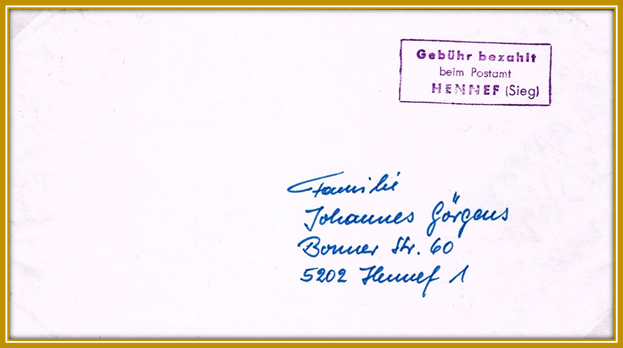 Gebühr bezahlt
beim Postamt
HENNEF (Sieg)
Familie
Johannes Görgens
Bonner Str. 60
5202 Hennef 1